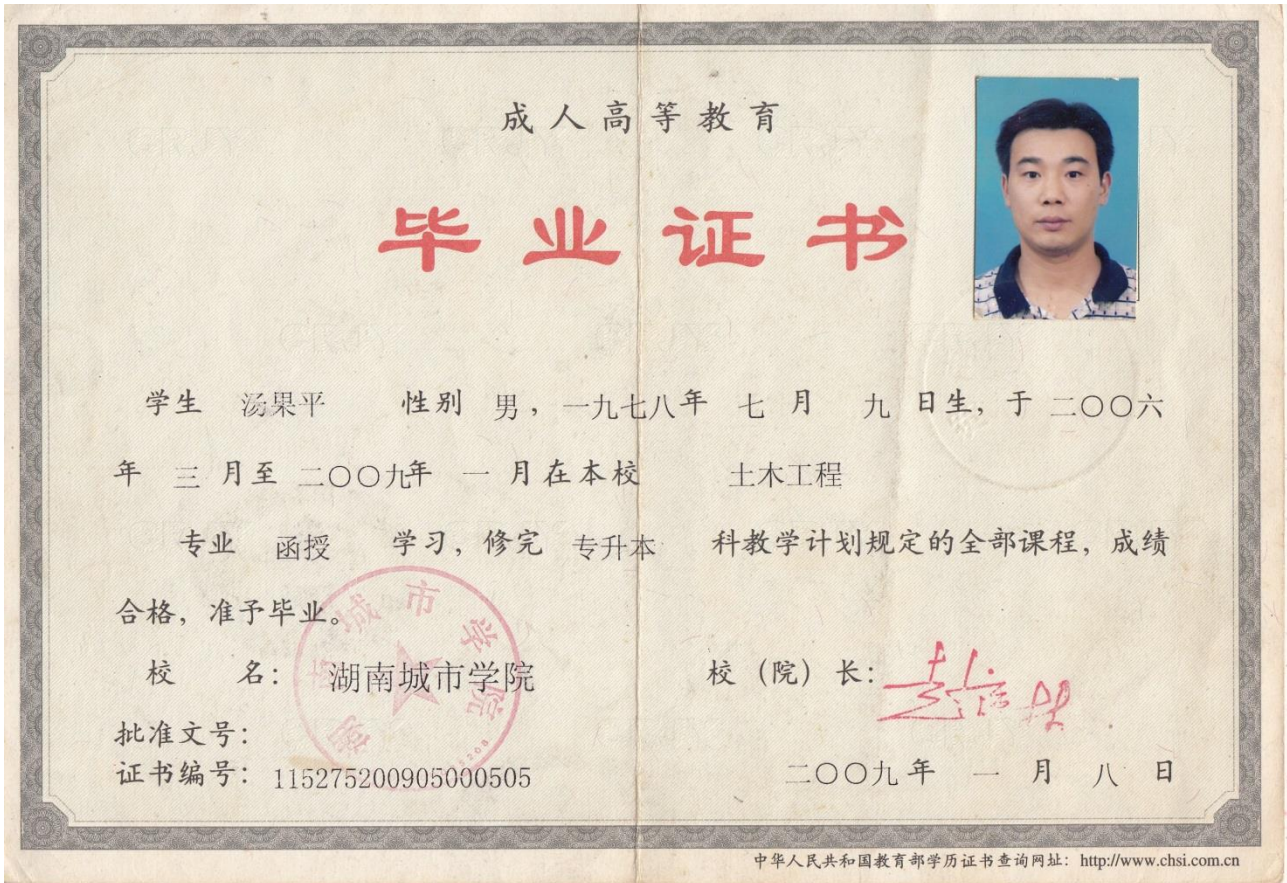 成人高等教育
毕业证书
学生 汤果平 性别 男，一九七八年 七 月 九 日生，于 二〇〇六
年 三 月至 二〇〇九年 一 月在本校 土木工程
专业 函授 学习，修完 专升本 科教学计划规定的全部课程，成绩
合格，准予毕业。
校 名：湖南城市学院
校（院）长：
批准文号：
证书编号：115275200905000505
二〇〇九年 一 月 八 日
湖南城市学院
中华人民共和国教育部学历证书查询网址：http://www.chsi.com.cn